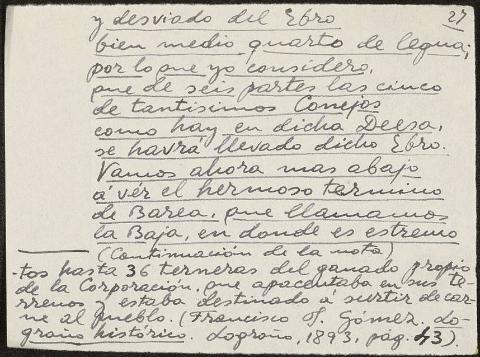 27
y desviado del Ebro
bien medio quarto de legua;
por lo que yo considero,
que de seis partes las cinco
de tantisimos Conejos
como hay en dicha Deesa,
se havrá llevado dicho Ebro.
Vamos ahora mas abajo
á vér el hermoso termino
de Barea, que llamamos
la Baja, en donde es estremo
(Continuación de la nota)
-tos hasta 36 terneras del ganado propio
de la Corporación, que apacentaba en sus te-
rrenos y estaba destinado a surtir de car-
ne al pueblo. (Francisco J. Gómez. Lo-
groño histórico. Logroño, 1893, pág. 43).